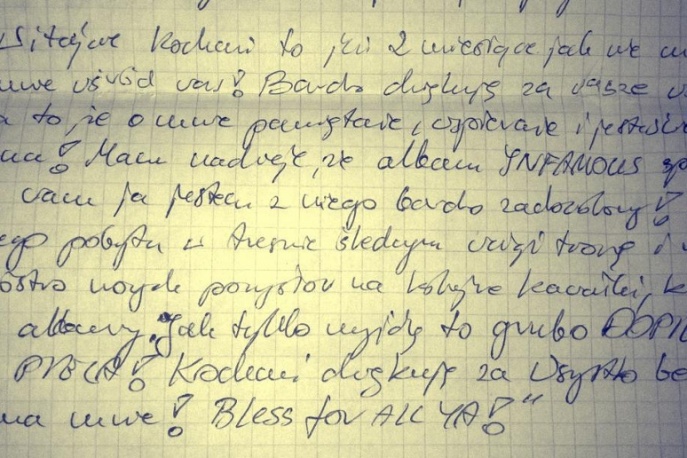 Witajcie Kochani to już 2 miesiące jak nie m
mnie wśród was! Bardo dziękuję za wasze
a to, że o mnie pamiętacie, wspieracie i jesteście
na! Mam nadzieje, że album INFAMOUS
wam ja jestem z niego bardo zadowolony!
ego pobytu w areszcie śledczym i
ostro nowych pomysłów na kolejne kawałki, k
albumy. Jak tylko wyjdę to grubo DOPIE
Kochani dziękuję za wszystko
na mnie! Bless for ALL YA!"